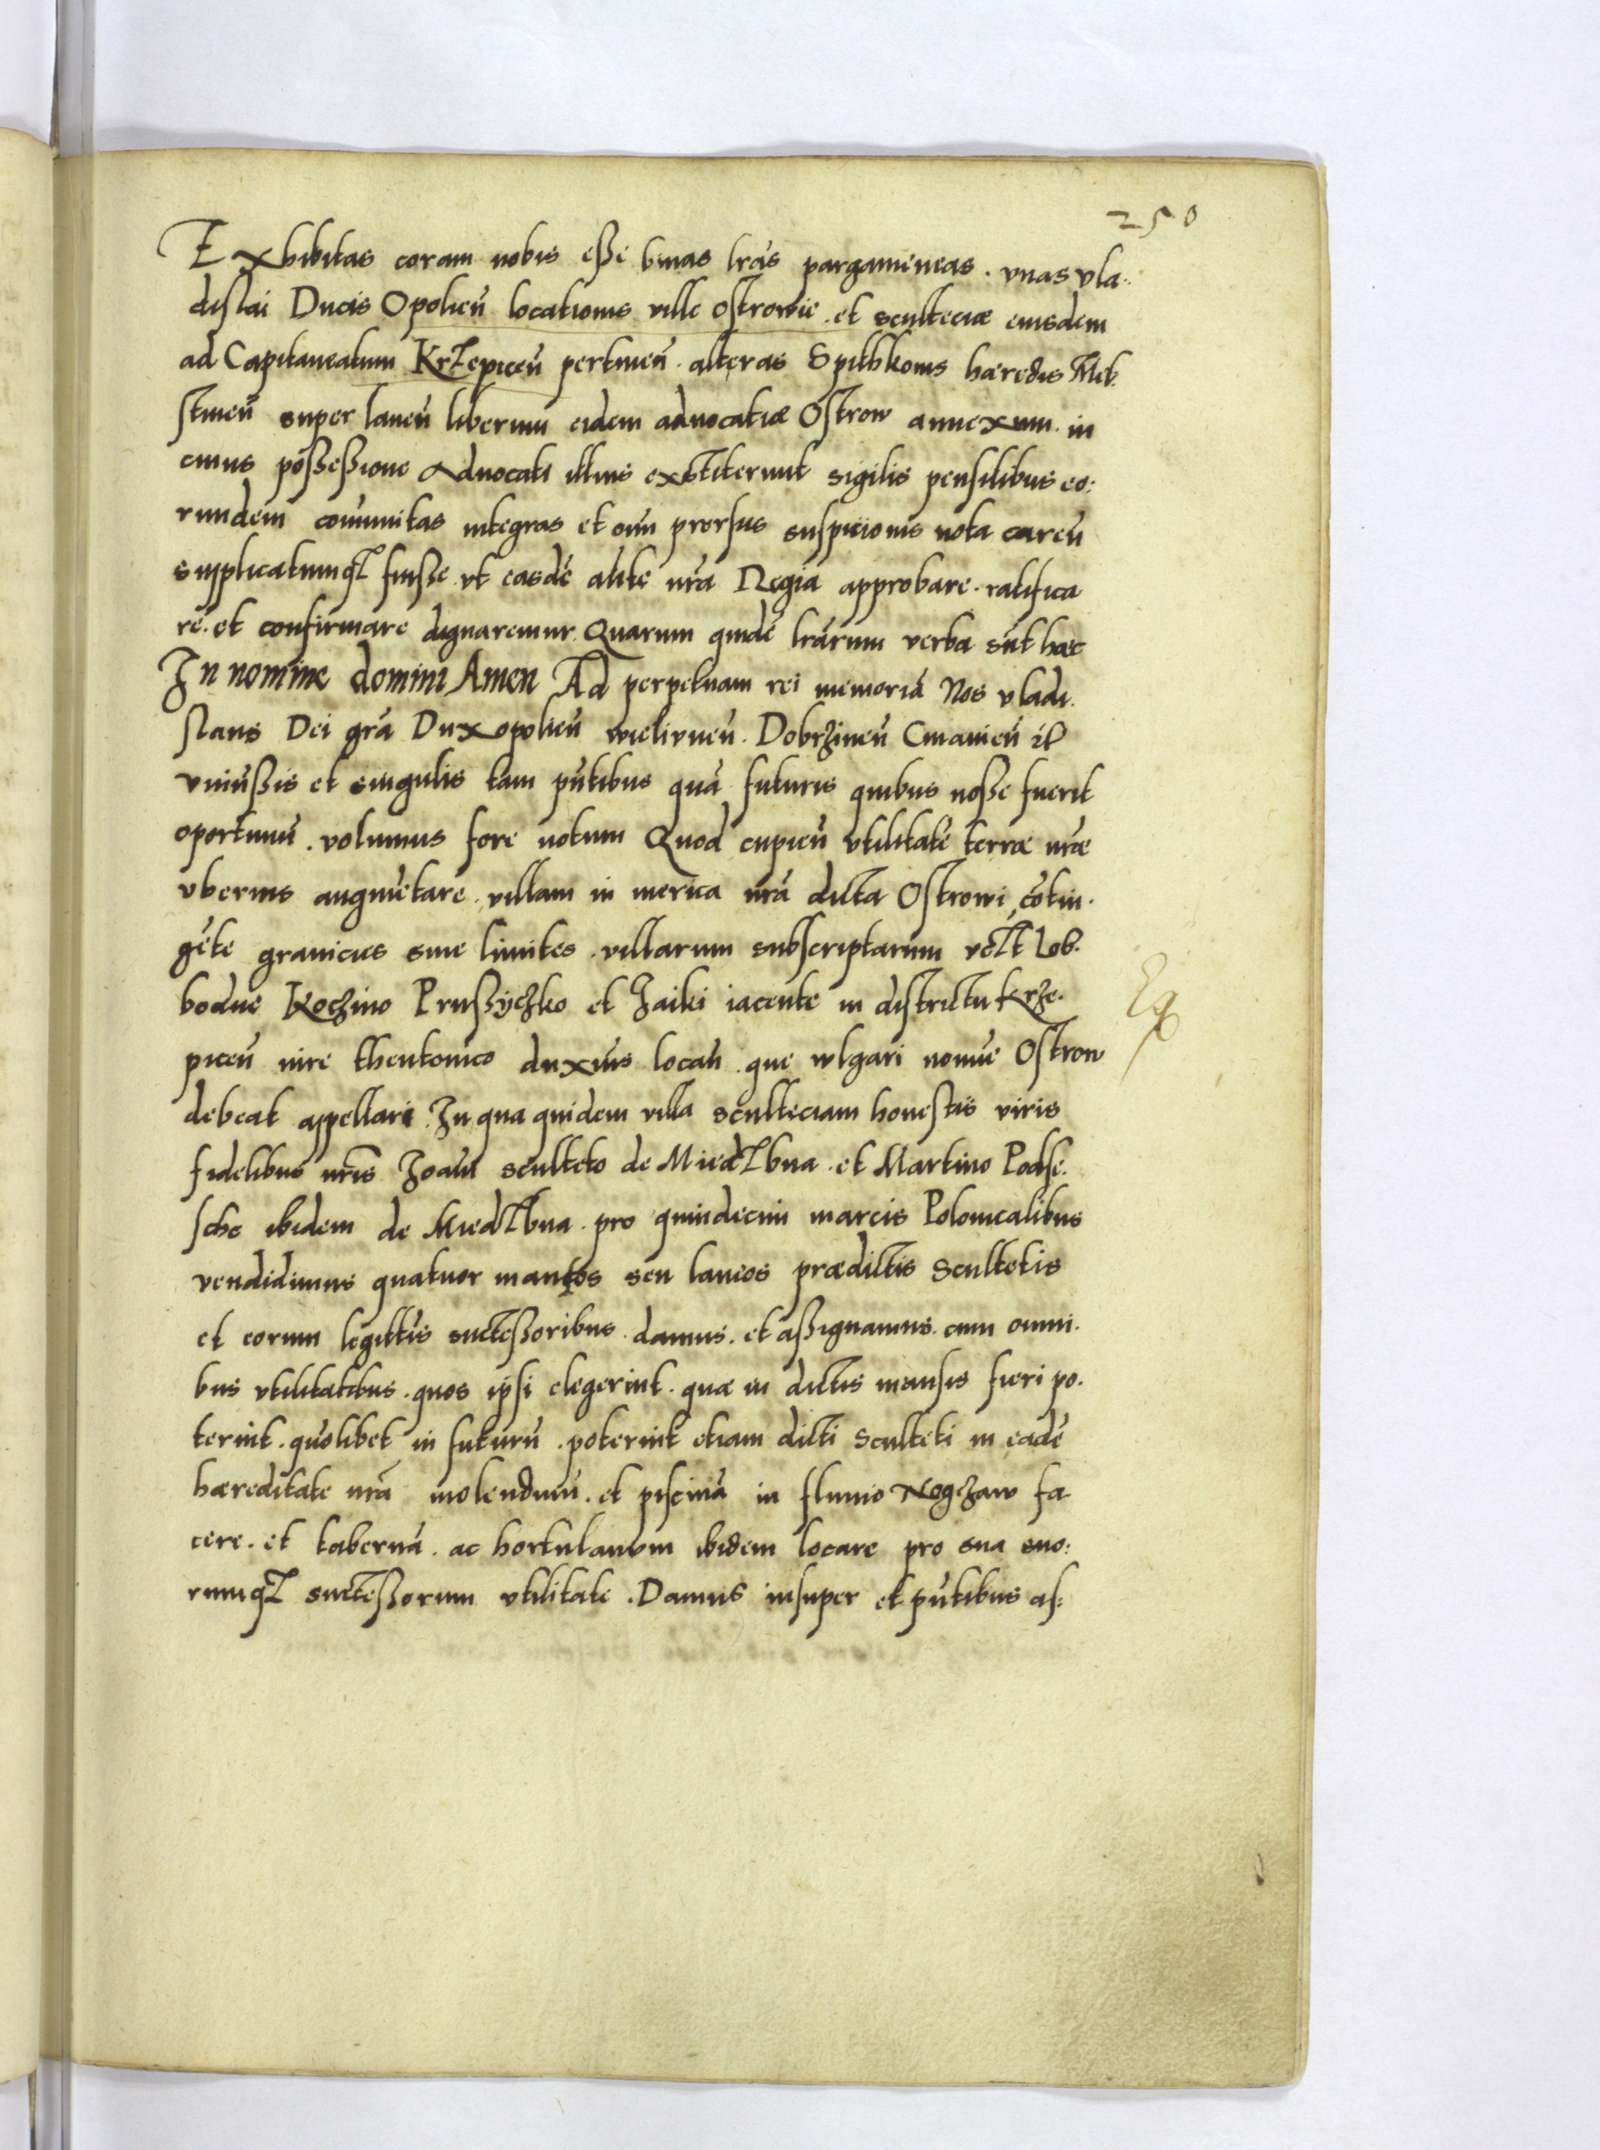 250
Exhibitas coram nobis esse binas lrãs pargameneas. vnas vla..
dislai Ducis Opolień locationis ville Ostrowie. et scultecιæ eiusdem
ad Capitaneatum Krzepiceń pertineń. alteras Spithkonis hæredis Mel.
stineń super laneũ liberum eidem aduocatiæ Ostrow annexum. in
cuius possessione Aduocati illius exstiterunt sigilis pensilibus eo:
rundem comunitas integras et oĩm prorsus suspicionis nota careń
supplicatumqz fuisse vt easdẽ alite nrã Regia approbare. ratifica
re. et confirmare dignaremur. Quarum quidẽ lrarum verba sũt hæc
In nomine domini Amen Ad perpetuam rei memoriã Nos vladi.
slaus Dei grã Dux opolień wielivneń. Dobrzineń Cuiavień zc
vniũssis et singulis tam pñtibus quã futuris quibus nosse fuerit
oportunũ. volumus fore notum Quod cupień vtilitatẽ terræ nræ
vberius augmẽtare. villam in merica nrã dicta Ostrowi, cõtin.
gẽte granicies siue limites. villarum subscriptarum vclt Lob.
bodne Koczino Prussyczko et Zaiki iacente in districtu Krze.
piceń iure theutonico duximus locań. que wlgari nomĩe Ostrow
debeat appellari. In qua quidem villa sculteciam honestis viris
fidelibus nris Joani sculteto de Miedzbna. et Martino Podse.
sche ibidem de Miedzbna. pro quindecim marcis Polonicalibus
vendidimus quatuor mansos seu laneos prædictis Scultetis
et eorum legittis successoribus. damus. et assignamus. cum omni.
bus vtilitatibus. quos ipsi elegerint. quæ in dictis mansis fieri po.
terint. quolibet in futurũ. poterint etiam dicti Sculteti in eadẽ
hæreditate nrã molendinũ. et piscinã in fluuio Nogczaw fa
cere. et tabernã. ac hortulanum ibidem locare pro sua suo:
rumqz successorum vtilitate. Damus insuper et pñtibus as: